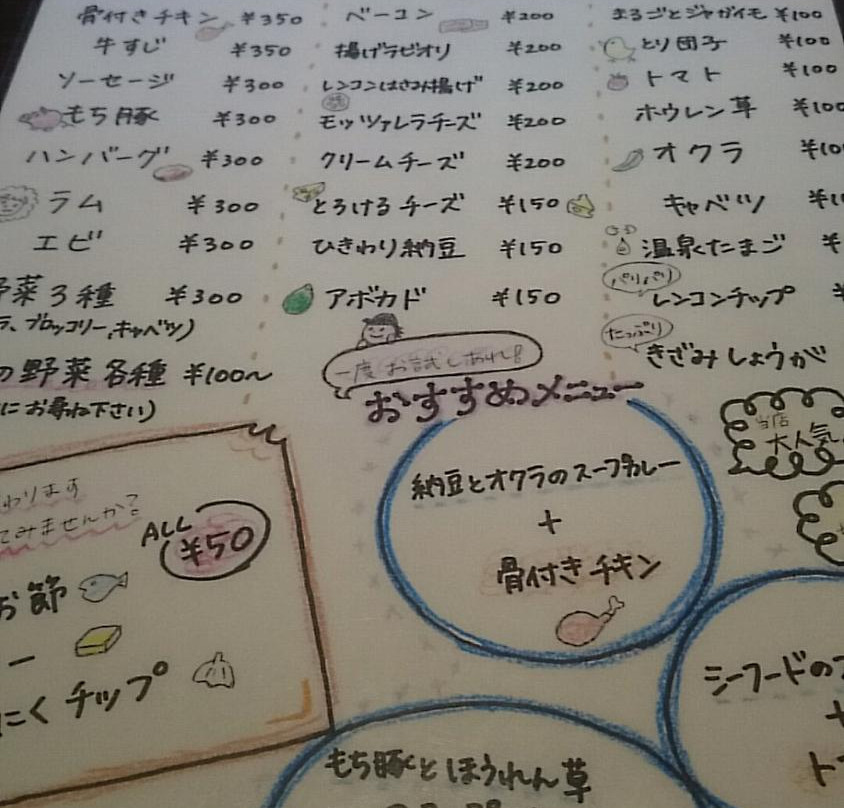 骨付きチキン ¥350
牛すじ ¥350
ソーセージ ¥300
もち豚 ¥300
ハンバーグ ¥300
ラム ¥300
エビ ¥300
野菜3種 ¥300
ラ、ブロッコリー、キャベツ)
の野菜各種 ¥100〜
にお尋ね下さい)
ベーコン ¥200
揚げラビオリ ¥200
レンコンはさみ揚げ ¥200
モッツァレラチーズ ¥200
クリームチーズ ¥200
とろけるチーズ ¥150
ひきわり納豆 ¥150
アボカド ¥150
まるごとジャガイモ ¥100
とり団子 ¥100
トマト ¥100
ホウレン草 ¥100
オクラ ¥10
キャベツ ¥1
温泉たまご ¥
パリパリ
レンコンチップ ¥
たっぷり
きざみしょうが
一度お試しあれ!
おすすめメニュー
納豆とオクラのスープカレー
+
骨付きチキン
当店
大人気
わります
てみませんか?
ALL
¥50
お節
ー
にくチップ
シーフードの
+
ト
もち豚とほうれん草